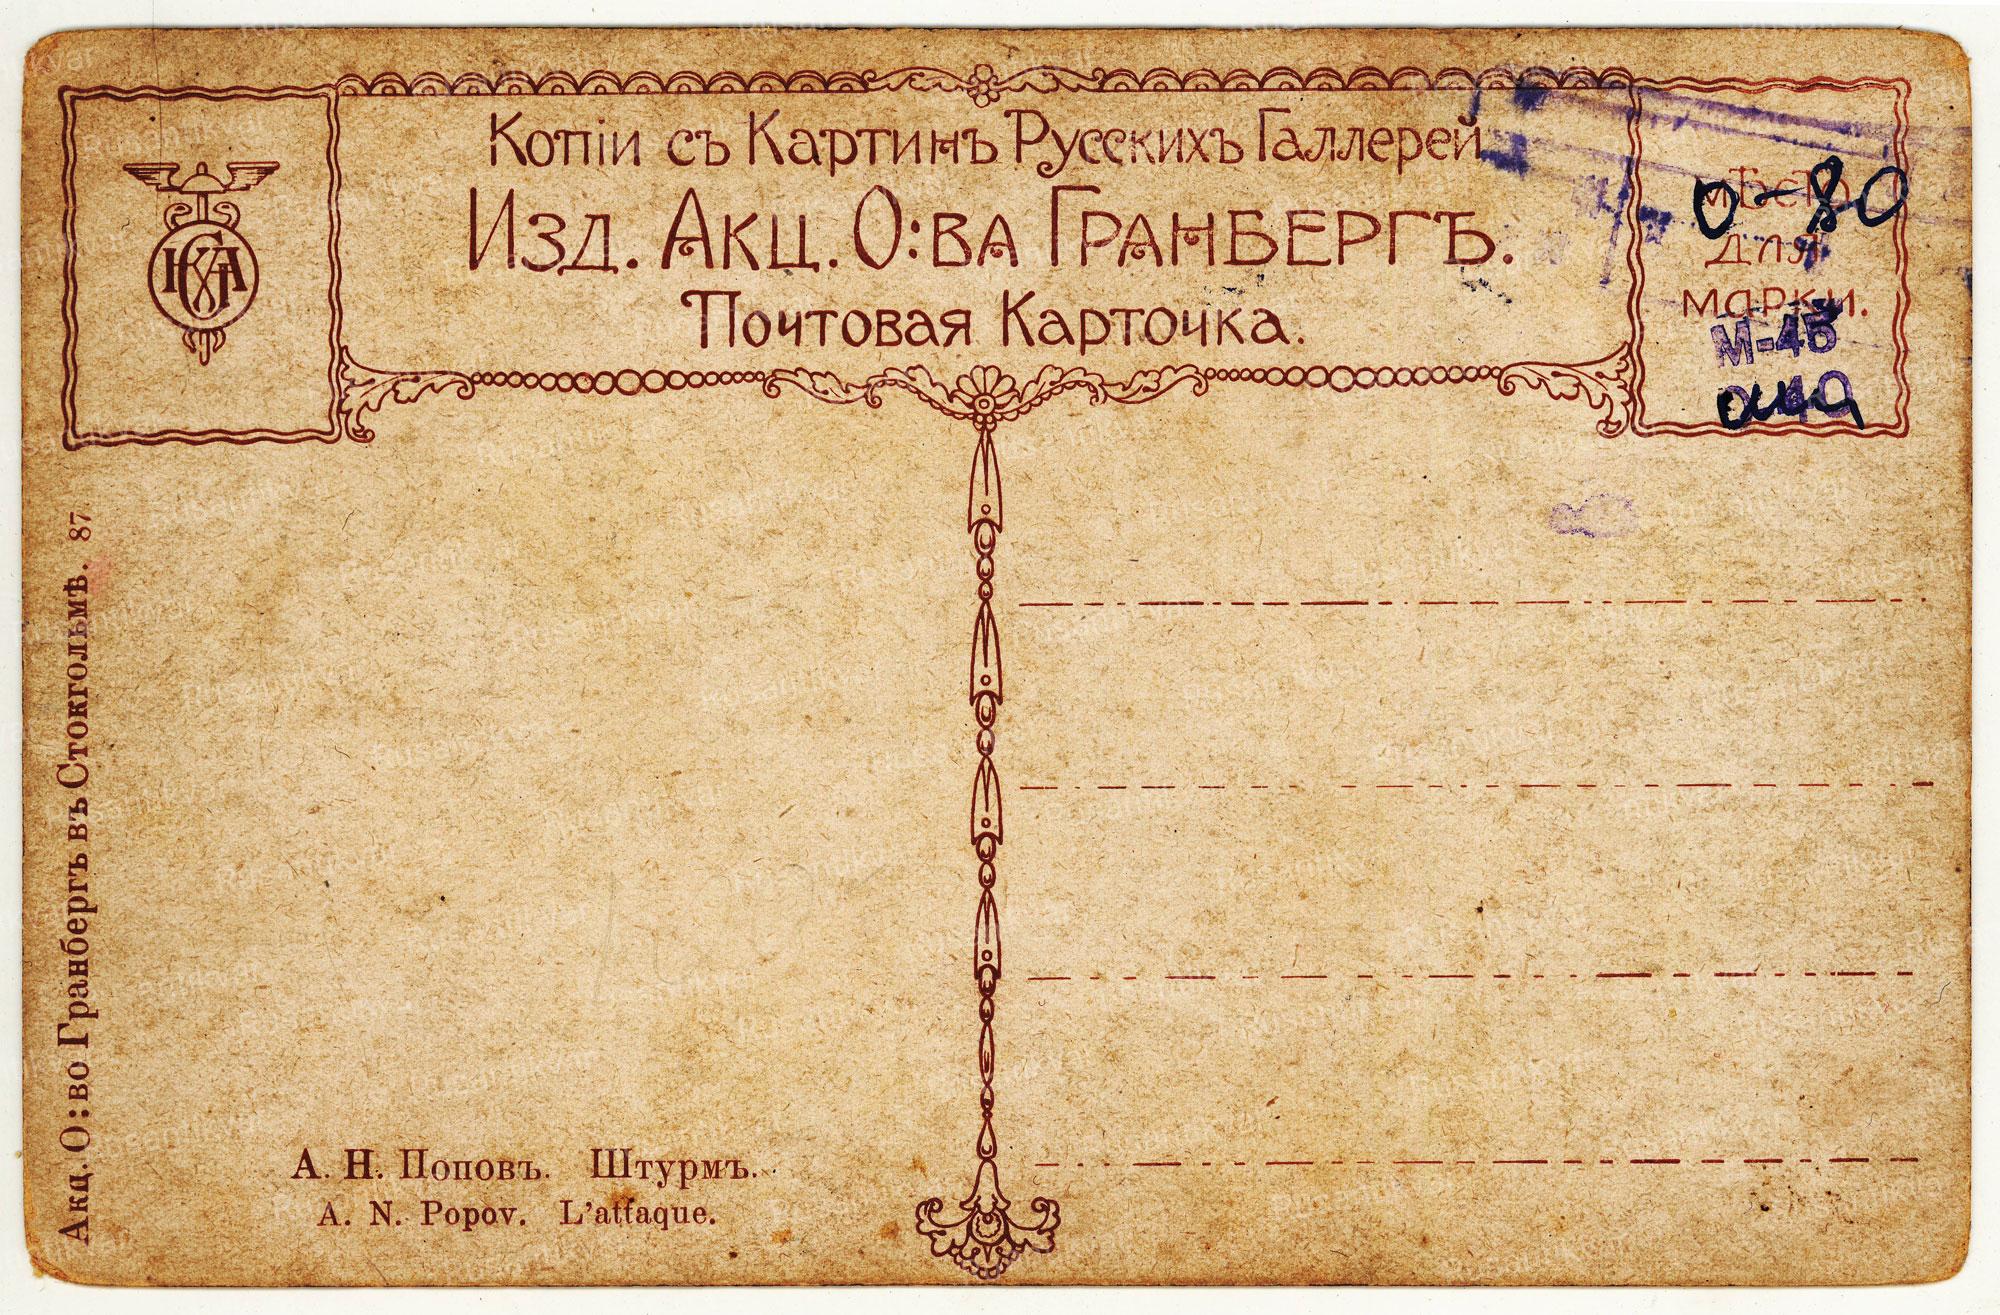 Копіи съ Картинъ Русскихъ Галлерей
Изд. Акц. О:ва Гранбергъ.
Почтовая Карточка.
мѣсто
для
марки.
0-80
М-45
Акц. О:во Гранбергъ въ Стокгольмѣ. 87
А. Н. Поповъ. Штурмъ.
A. N. Popov. L'attaque.